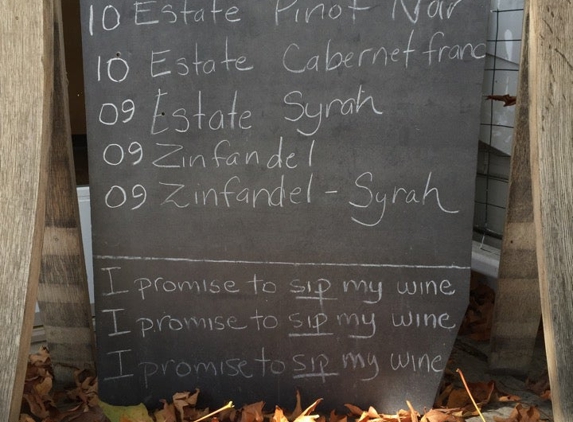 10 Estate Pinot Noir
10 Estate Cabernet franc
09 Estate Syrah
09 Zinfandel
09 Zinfandel - Syrah
I promise to sip my wine
I promise to sip my wine
I promise to sip my wine